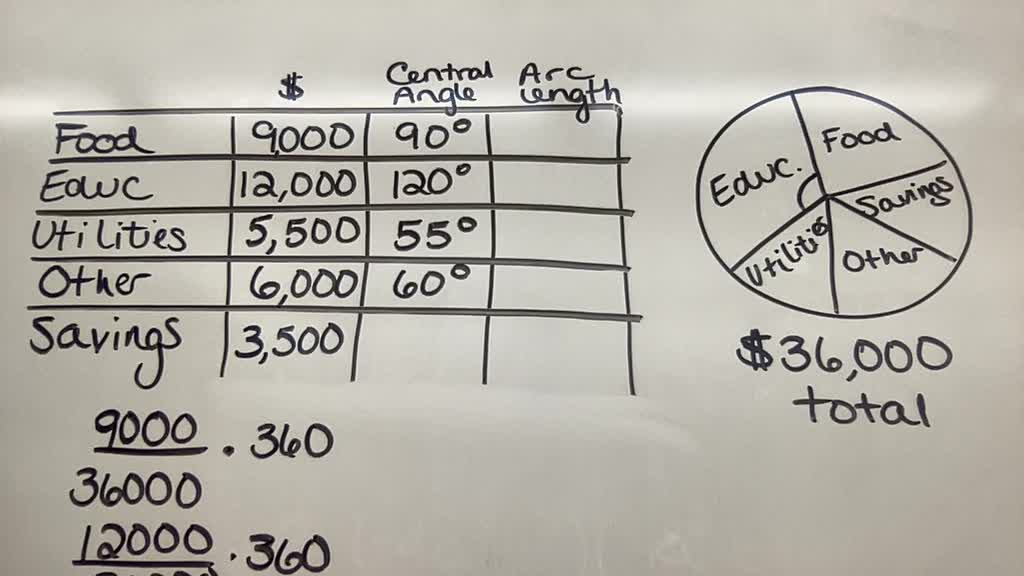 $ Central Angle Arc Length
Food 9,000 90°
Educ 12,000 120°
Utilities 5,500 55°
Other 6,000 60°
Savings 3,500
9000 . 360
36000
12000 . 360
Educ.
Food
Savings
Utilities
Other
$36,000
total